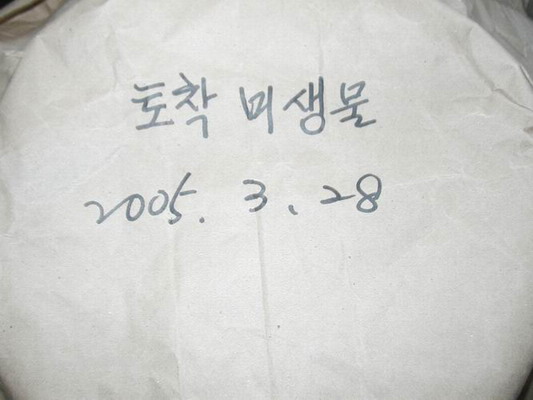 토착 미생물
2005. 3. 28